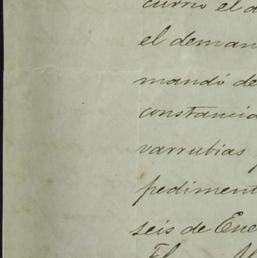 currió el d
el deman
mandó de
constancia
varrubias
pediment
seis de Ene
El